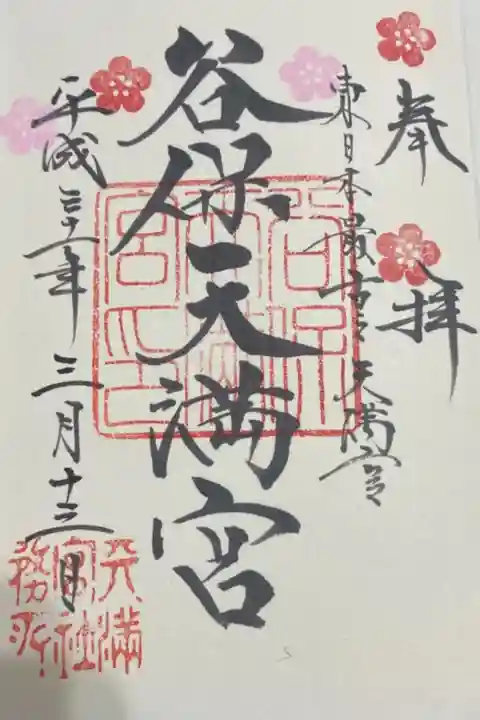 奉拝
東日本最古之天満宮
谷保天満宮
平成三十一年三月十三日
谷保
天満
宮印
天満
宮社
務所